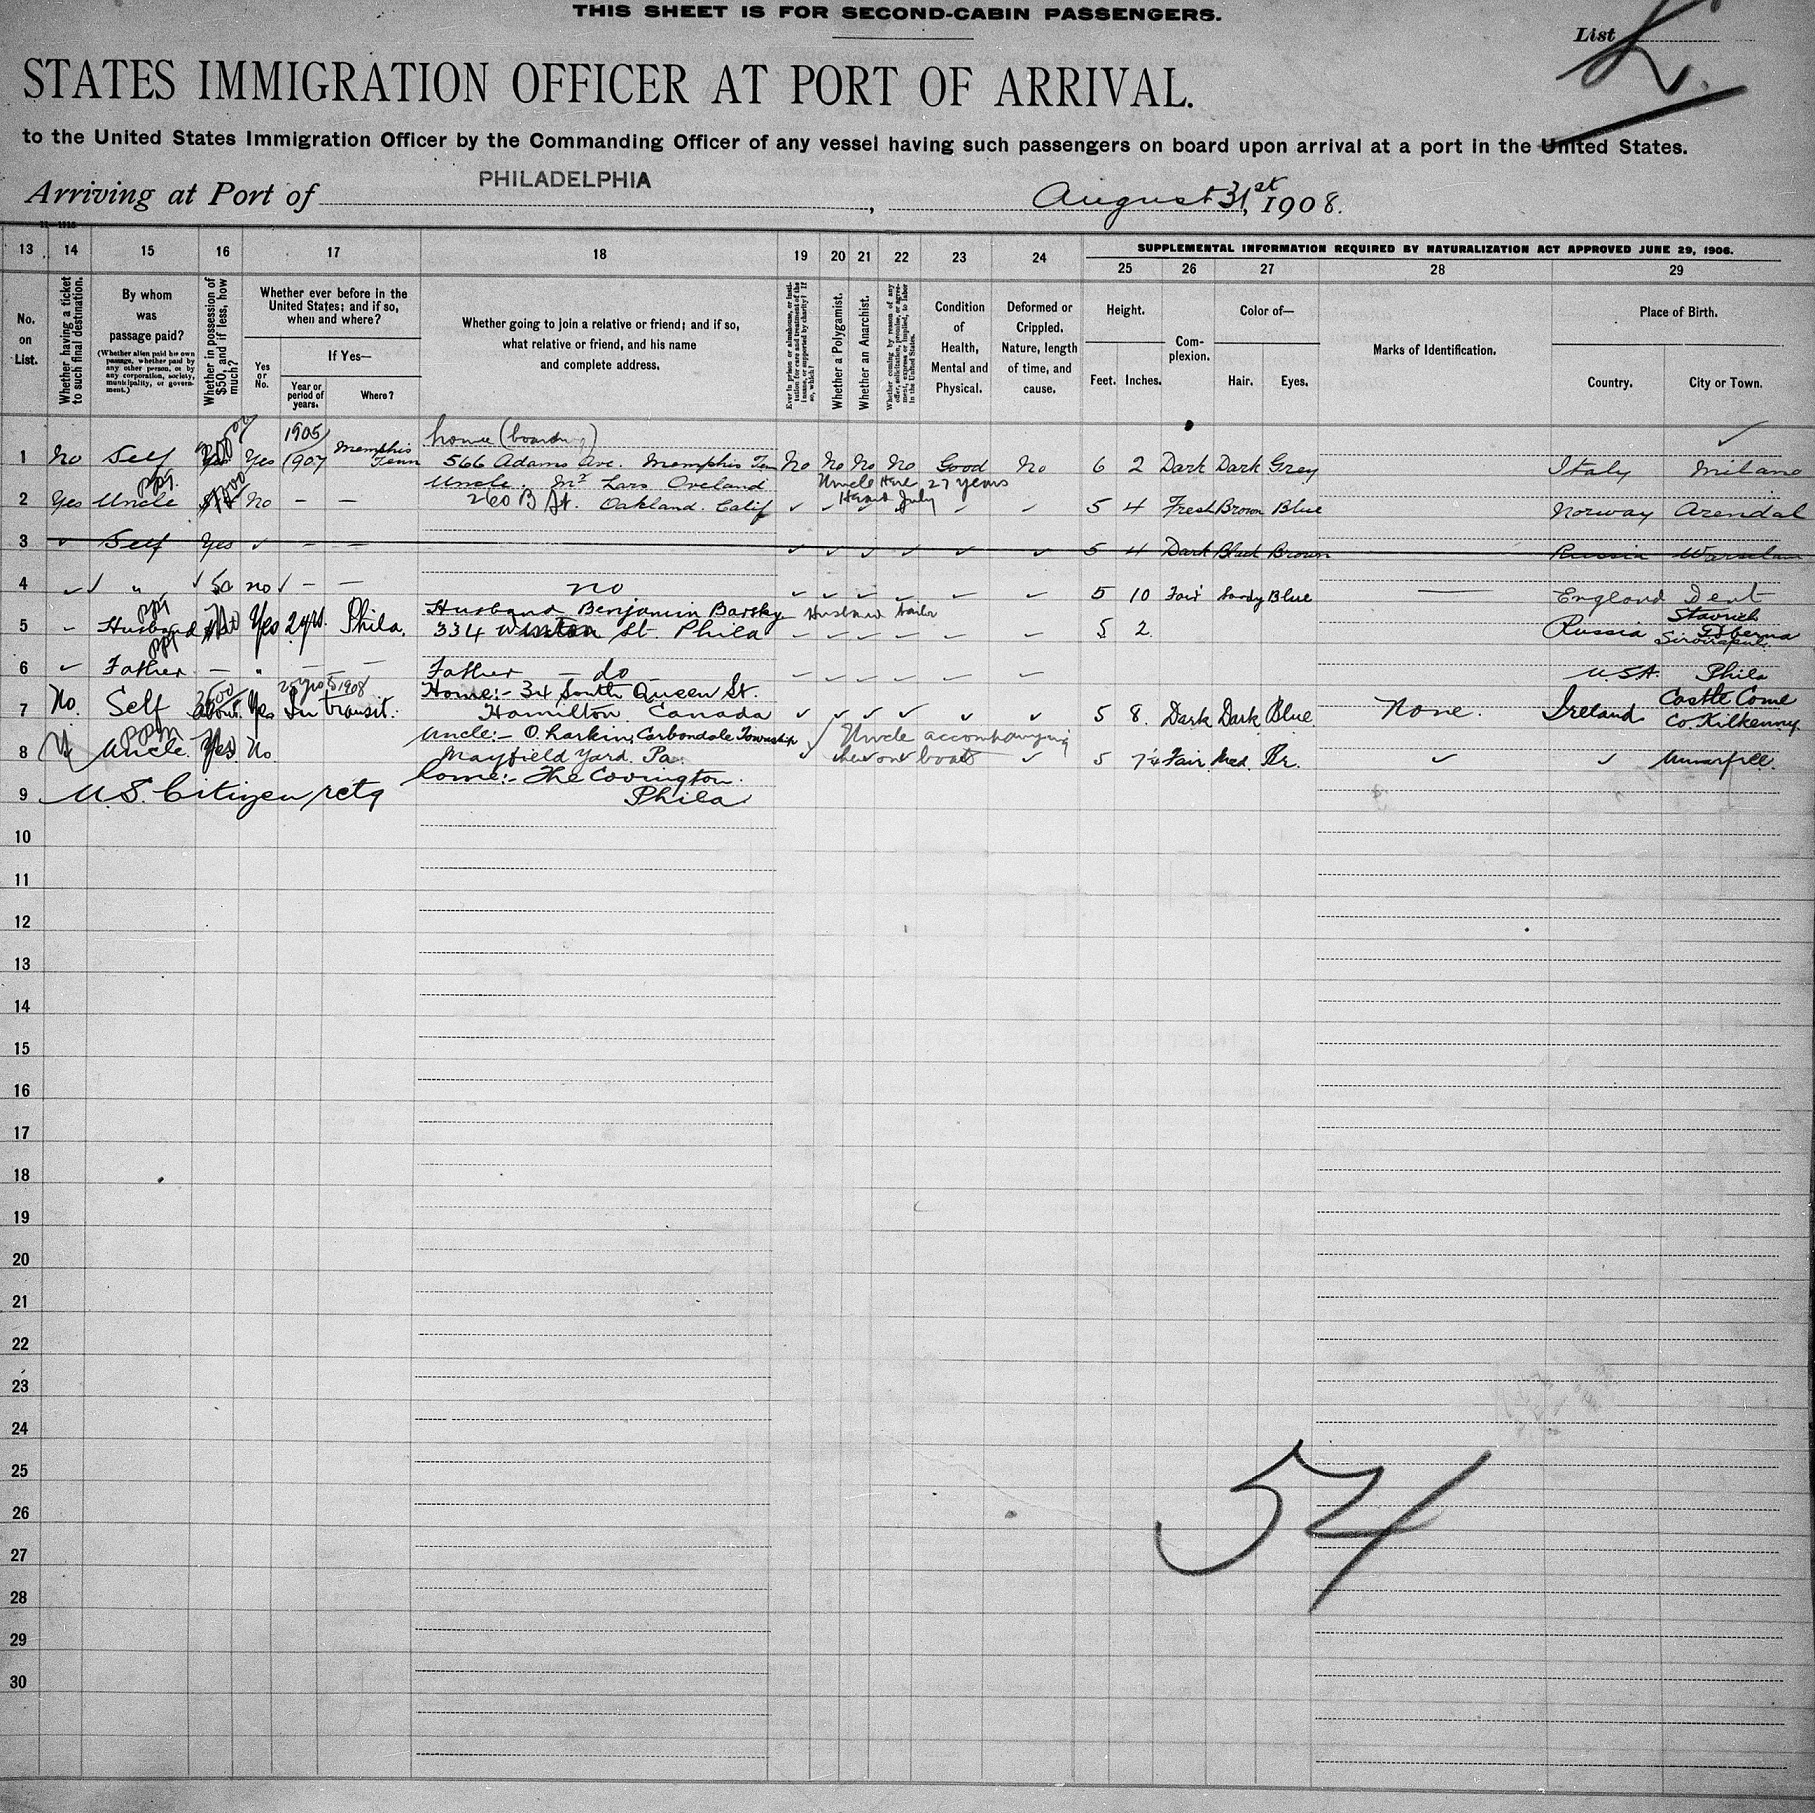 THIS SHEET IS FOR SECOND-CABIN PASSENGERS.
List
STATES IMMIGRATION OFFICER AT PORT OF ARRIVAL.
to the United States Immigration Officer by the Commanding Officer of any vessel having such passengers on board upon arrival at a port in the United States.
Arriving at Port of PHILADELPHIA, August 31st, 1908.
13 14 15 16 17 18 19 20 21 22 23 24 SUPPLEMENTAL INFORMATION REQUIRED BY NATURALIZATION ACT APPROVED JUNE 29, 1906.
25 26 27 28 29
No. on List.
Whether having a ticket to such final destination.
By whom was passage paid?
(Whether alien paid his own passage, whether paid by any other person, or by any corporation, society, municipality, or government.)
Whether in possession of $50, and if less, how much?
Whether ever before in the United States; and if so, when and where?
Yes or No.
If Yes—
Year or period of years.
Where?
Whether going to join a relative or friend; and if so, what relative or friend, and his name and complete address.
Ever in prison or almshouse, or institution for care and treatment of the insane, or supported by charity? If so, which?
Whether a Polygamist.
Whether an Anarchist.
Whether coming by reason of any offer, solicitation, promise, or agreement, express or implied, to labor in the United States.
Condition of Health, Mental and Physical.
Deformed or Crippled. Nature, length of time, and cause.
Height.
Feet. Inches.
Complexion.
Color of—
Hair. Eyes.
Marks of Identification.
Place of Birth.
Country. City or Town.
1905/ home (boarding)
1 No Self Yes Yes 1907 Memphis Tenn 566 Adams Ave. Memphis Ten No No No No Good No 6 2 Dark Dark Grey Italy Milano
ppt. Uncle. Mr Lars Oveland Uncle Here 27 years
2 Yes Uncle No – – 260 B St. Oakland. Calif July 5 4 Fresh Brown Blue Norway Arendal
3 Self Yes – – 5 4 Dark Black Brown Russia
4 " 50 no – – no 5 10 Fair Sandy Blue England Dent
ppt Husband Benjamin Barsky Husband tailor
5 – Husband Yes 2 yrs. Phila. 334 St. Phila 5 2. Russia
ppt
6 Father – " – – Father – do – U.S.A. Phila
1908 Home:- 34 South Queen St.
7 No. Self about Yes In transit. Hamilton Canada 5 8. Dark Dark Blue None. Ireland Castle Come Co. Kilkenny.
Uncle:- O. Larkin, Carbondale Township Uncle accompanying
8 Uncle. Yes No. Mayfield Yard. Pa. her on boat 5 Fair Med. Br.
home:- The Covington.
9 U.S. Citizen retg Phila
10
11
12
13
14
15
16
17
18
19
20
21
22
23
24
25
26
27
28
29
30
54